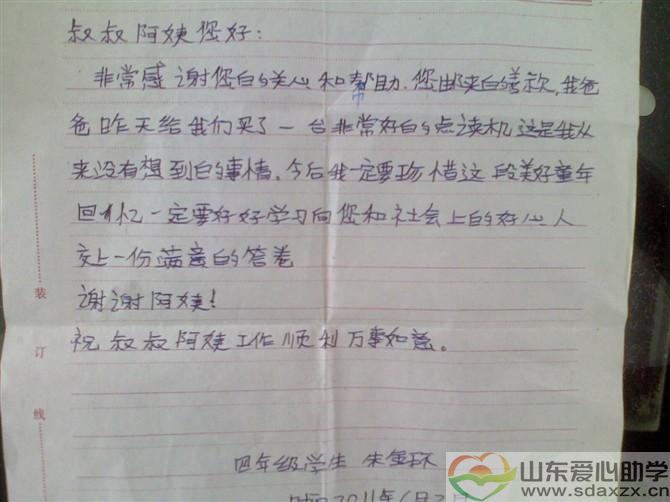 叔叔阿姨您好:
非常感谢您的关心和帮助.您邮来的善款,我爸
爸昨天给我们买了一台非常好的点读机这是我从
来没有想到的事情。今后我一定要珍惜这段美好童年
回忆一定要好好学习向您和社会上的好心人
交上一份满意的答卷
谢谢阿姨!
祝叔叔阿姨工作顺利万事如意。
四年级学生 朱
2011年6月
装
订
线
山东爱心助学
www.sdaxzx.cn